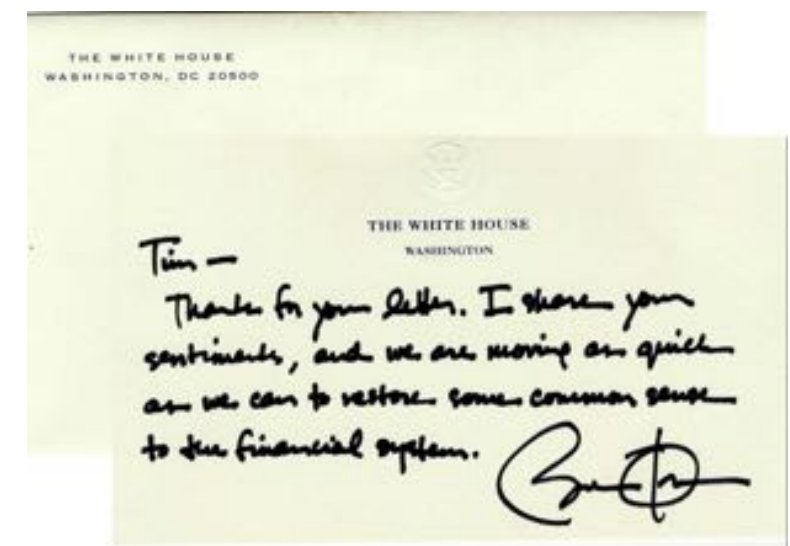 THE WHITE HOUSE
WASHINGTON, DC 20500
THE WHITE HOUSE
WASHINGTON
Tim —
Thanks for your letter. I share your
sentiments, and we are moving as quick
as we can to restore some common sense
to the financial system.